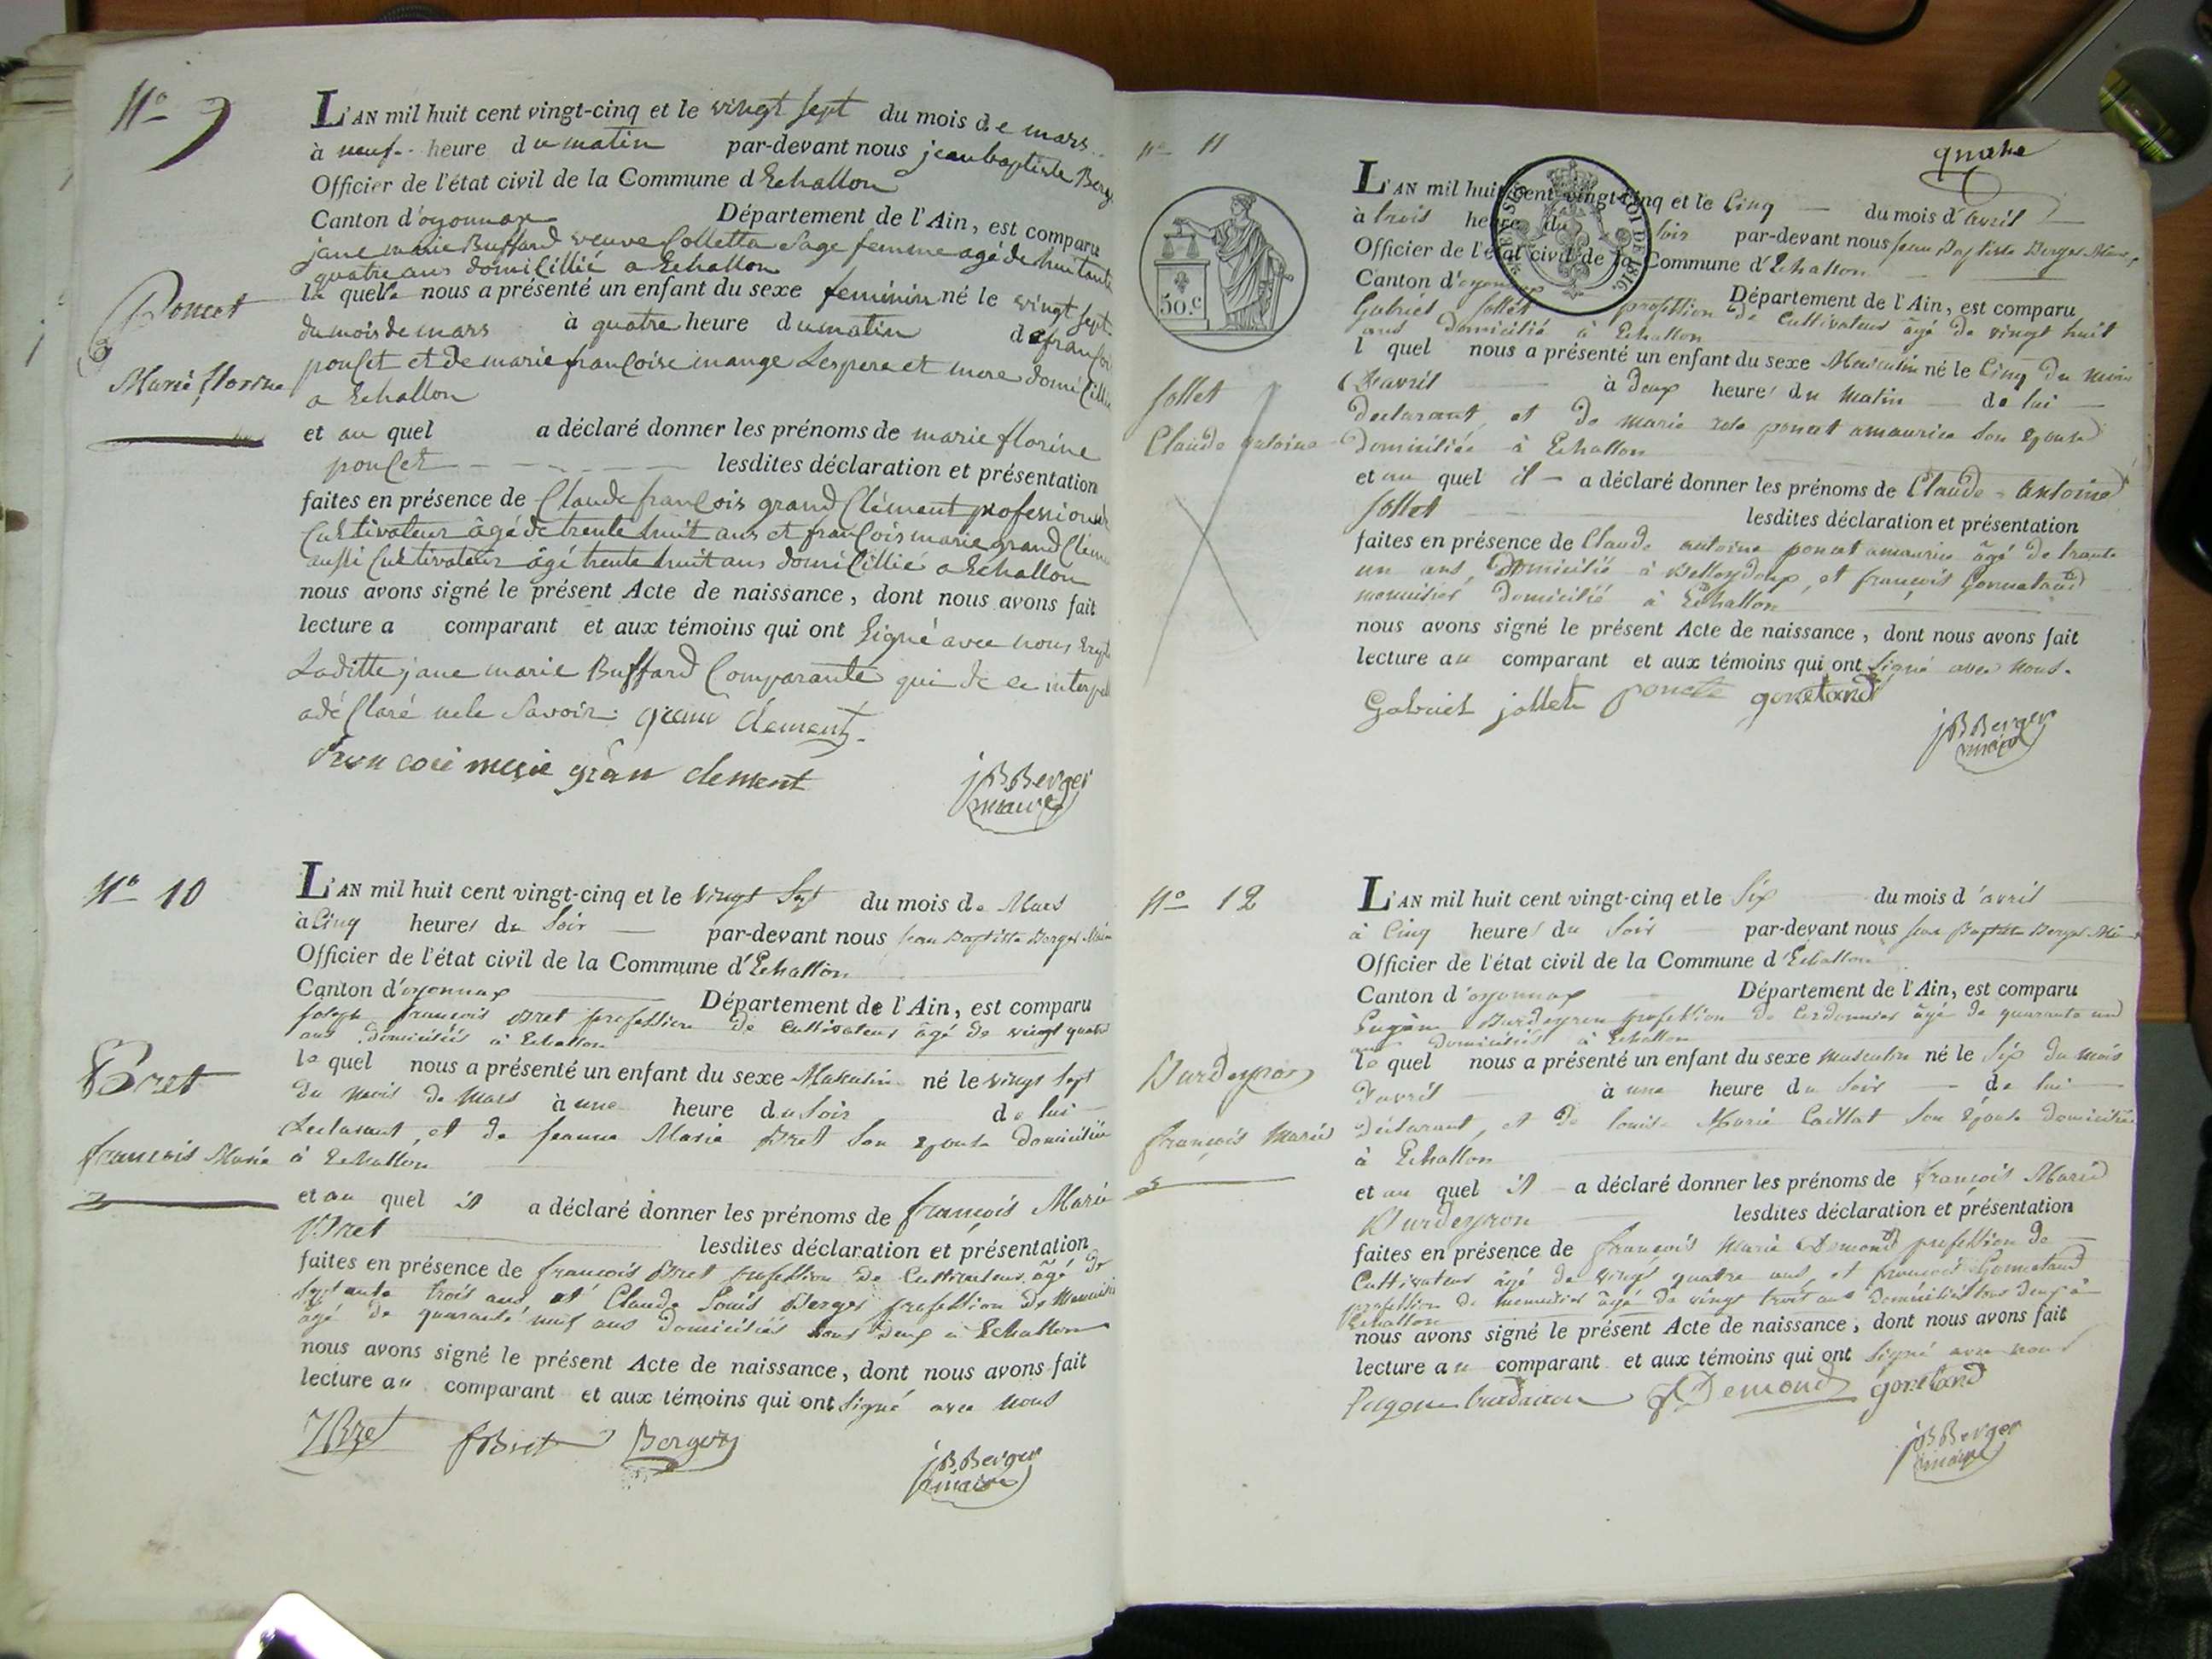 N° 9
L'AN mil huit cent vingt-cinq et le vingt sept du mois de mars
à neuf heure du matin par-devant nous jean baptiste Berg
Officier de l'état civil de la Commune d'Echallon
Canton d'oyonnax Département de l'Ain, est comparu
jane marie Buffard veuve Colletta sage femme agé de huitante
quatre ans domicillié a Echallon
la quelle nous a présenté un enfant du sexe feminin né le vingt sept
du mois de mars à quatre heure du matin de franco
Poncet
Marie florine
ponset et de marie françoise mange Les pere et mere domicillié
a Echallon
et au quel a déclaré donner les prénoms de marie florine
ponset lesdites déclaration et présentation
faites en présence de Claude françois grand Clément profession de
Cultivateur âgé de trente huit ans et françois marie grand Cléme
aussi Cultivateur âgé trente huit ans domicillié a Echallon
nous avons signé le présent Acte de naissance, dont nous avons fait
lecture a comparant et aux témoins qui ont signé avec nous
Laditte jane marie Buffard Comparante qui de ce interpel
a déclaré ne le savoir. gran clement
gran clement
jBBerger
maire
N° 10
L'AN mil huit cent vingt-cinq et le vingt sept du mois de Mars
à Cinq heures du soir par-devant nous jean Baptiste Berger Maire
Officier de l'état civil de la Commune d'Echallon
Canton d'oyonnax Département de l'Ain, est comparu
joseph françois Bret profession de Cultivateur âgé de vingt quatre
ans domiciliés à Echallon
le quel nous a présenté un enfant du sexe Masculin né le vingt sept
du mois de Mars à une heure du soir de lui
Bret
françois Marie
declarant, et de jeanne Marie Bret son epouse domiciliée
à Echallon
et au quel il a déclaré donner les prénoms de françois Marie
Bret lesdites déclaration et présentation
faites en présence de françois Bret profession de Cultivateur âgé de
septante trois ans et Claude Louis Berger profession de Menuisi
âgé de quarante neuf ans domiciliés tous deux à Echallon
nous avons signé le présent Acte de naissance, dont nous avons fait
lecture au comparant et aux témoins qui ont signé avec nous
JBret fBret Berger
jBBerger
maire
quatre
N° 11
50.C
L'AN mil huit cent vingt-cinq et le Cinq du mois d'avril
à trois heures du soir par-devant nous jean Baptiste Berger Maire
Officier de l'état civil de la Commune d'Echallon
Canton d'oyonnax Département de l'Ain, est comparu
Gabriel jollet profession de Cultivateur âgé de vingt huit
ans domicilié à Echallon
l quel nous a présenté un enfant du sexe Masculin né le Cinq du mois
d'avril à deux heures du matin de lui
jollet
Claude antoine
declarant, et de marie rose poncet amaurice son epouse
domiciliée à Echallon
et au quel il a déclaré donner les prénoms de Claude Antoine
jollet lesdites déclaration et présentation
faites en présence de Claude antoine poncet amaurice âgé de trante
un ans, domicilié à Belleydoux, et françois Gonnetand
menuisier domicilié à Echallon
nous avons signé le présent Acte de naissance, dont nous avons fait
lecture au comparant et aux témoins qui ont signé avec nous.
Gabriel jollet poncet gonetand
jBBerger
maire
N° 12
L'AN mil huit cent vingt-cinq et le six du mois d'avril
à Cinq heures du soir par-devant nous jean Baptiste Berger Maire
Officier de l'état civil de la Commune d'Echallon
Canton d'oyonnax Département de l'Ain, est comparu
Eugène Burdeyron profession de Cordonnier âgé de quarante un
ans domiciliés à Echallon
le quel nous a présenté un enfant du sexe masculin né le six du mois
d'avril à une heure du soir de lui
Burdeyron
françois Marie
déclarant, et de louise Marie Caillat son épouse domiciliée
à Echallon
et au quel il a déclaré donner les prénoms de françois Marie
Burdeyron lesdites déclaration et présentation
faites en présence de françois Marie Demond profession de
Cultivateur âgé de vingt quatre ans, et françois Gonnetand
profession de menuisier âgé de vingt trois ans domiciliés tous deux à
Echallon
nous avons signé le présent Acte de naissance, dont nous avons fait
lecture au comparant et aux témoins qui ont signé avec nous
Demond gonetand
jBBerger
maire